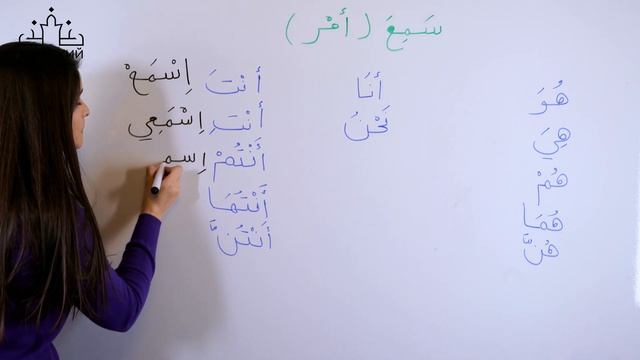 سَمِعَ (أمْر)
هُوَ
هِيَ
هُمْ
هُمَا
هُنَّ
أنَا
نَحْنُ
أنْتَ اِسْمَعْ
أنْتِ اِسْمَعِي
أنْتُمْ اِسم
أنْتُمَا
أنْتُنَّ